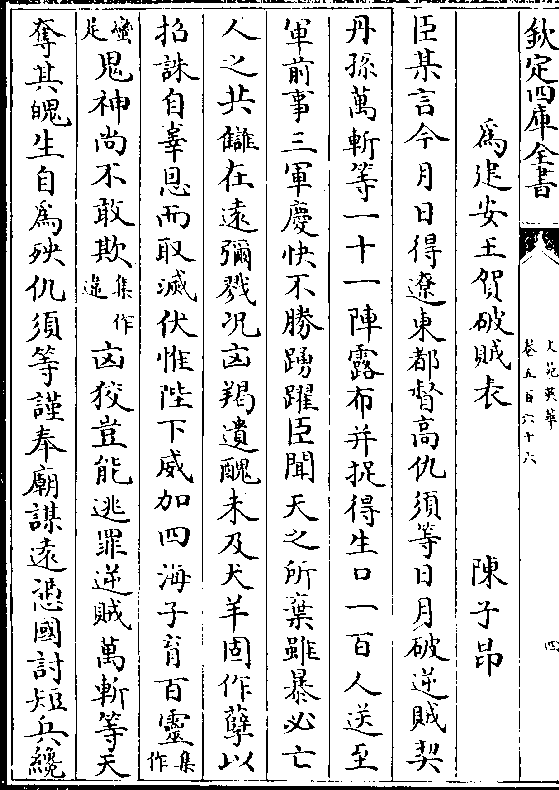 欽定四庫全書
文苑英華
卷五百六十六
四
為建安王賀破賊表　陳子昂
臣某言今月日得遼東都督高仇須等日月破逆賊契
丹孫萬斬等一十一陣露布并捉得生口一百人送至
軍前事三軍慶快不勝踴躍臣聞天之所棄雖暴必亡
人之共讎在遠彌戮况凶羯遺醜未及犬羊固作孽以
招誅自辜恩而取滅伏惟陛下威加四海子育百靈集作
蠻足鬼神尚不敢欺集作違凶狡豈能逃罪逆賊萬斬等天
奪其魄生自為殃仇須等謹奉廟謀遠憑國討短兵纔